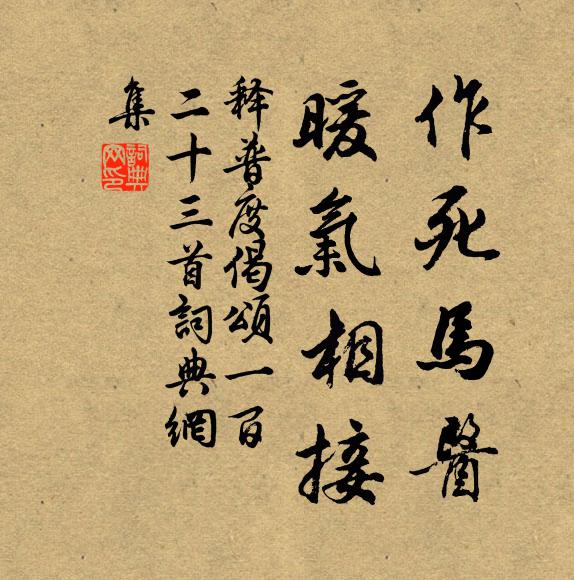 作死馬醫
暖氣相接
释普度偈頌一百
二十三首詞典網
集
詞典
网印